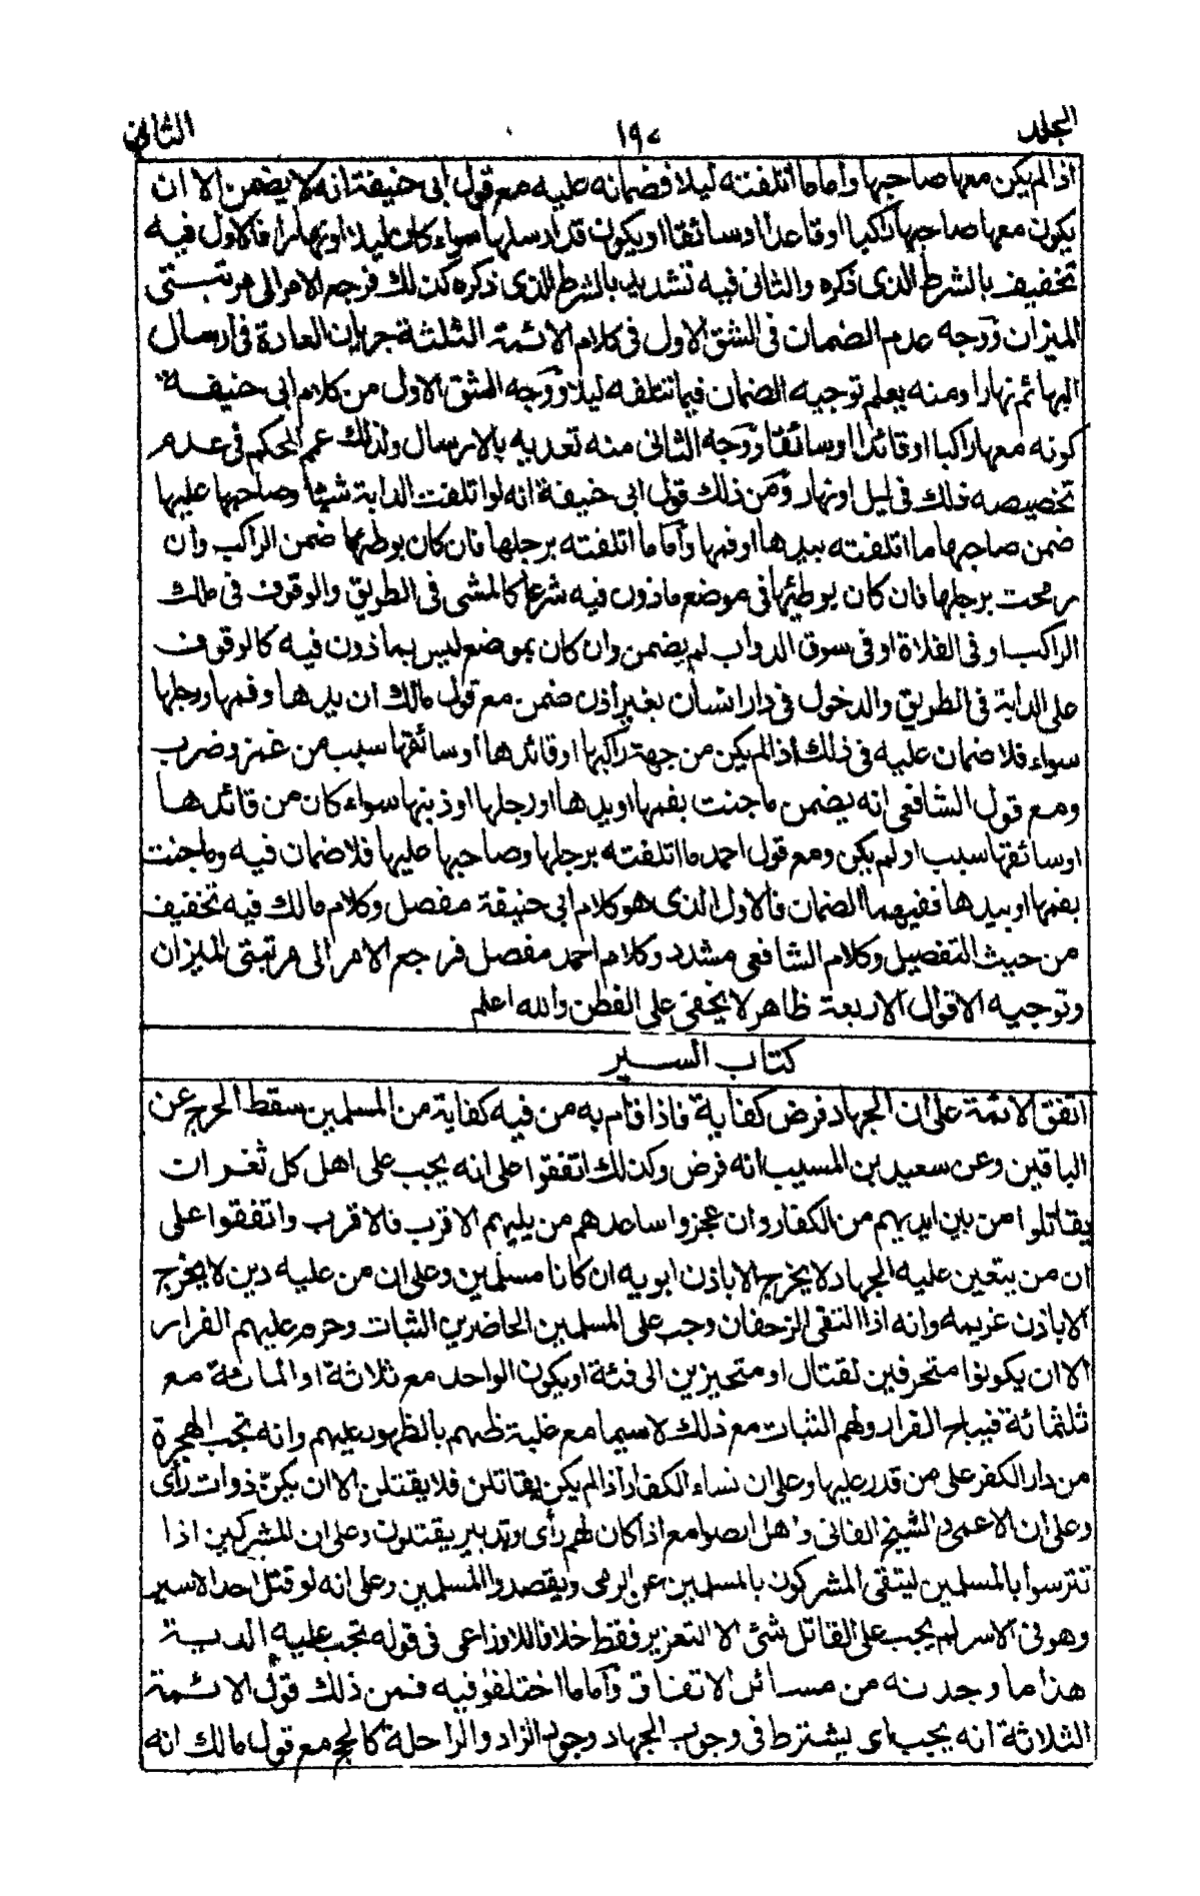 المجلد
١٩٠
الثاني
اذا لم يكن معها صاحبها وأما ما اتلفته ليلا فضمانه عليه مع قول ابى حنيفة انه لا يضمن الا ان
يكون معها صاحبها راكبا او قائدا او سائقا او يكون قد ارسلها سواء كان ليلا او نهارا فالاول فيه
تخفيف بالشرط الذى ذكره والثانى فيه تشديد بالشرط الذى ذكره كذلك فرجع الامر الى مرتبتى
الميزان ووجه عدم الضمان فى الشق الاول فى كلام الائمة الثلثة جريان العادة فى ارسال
البهائم نهارا ومنه يعلم توجيه الضمان فيما تتلفه ليلا ووجه الشق الاول من كلام ابى حنيفة
كونه معها راكبا او قائدا او سائقا ووجه الثانى منه تعديه بالارسال ولذلك عمم الحكم فى عدم
تخصيصه ذلك فى ليل او نهار ومن ذلك قول ابى حنيفة انه لو اتلفت الدابة شيئا وصاحبها عليها
ضمن صاحبها ما اتلفته بيدها او فمها وأما ما اتلفته برجلها فان كان بوطئها ضمن الراكب وان
رمحت برجلها فان كان بوطئها فى موضع ماذون فيه شرعا كالمشى فى الطريق والوقوف فى ملك
الراكب او فى الفلاة او فى سوق الدواب لم يضمن وان كان بموضع ليس بماذون فيه كالوقوف
على الدابة فى الطريق والدخول فى دار انسان بغير اذن ضمن مع قول مالك ان يدها وفمها ورجلها
سواء فلا ضمان عليه فى ذلك اذا لم يكن من جهة راكبها او قائدها او سائقها سبب من غمز وضرب
ومع قول الشافعى انه يضمن ما جنت بفمها او يدها او رجلها او ذنبها سواء كان من قائدها
او سائقها سبب او لم يكن ومع قول احمد ما اتلفته برجلها وصاحبها عليها فلا ضمان فيه وما جنت
بفمها او بيدها ففيهما الضمان فالاول الذى هو كلام ابى حنيفة مفصل وكلام مالك فيه تخفيف
من حيث التفصيل وكلام الشافعى مشدد وكلام احمد مفصل فرجع الامر الى مرتبتى الميزان
وتوجيه الاقوال الاربعة ظاهر لا يخفى على الفطن والله اعلم
كتاب السير
اتفق الائمة على ان الجهاد فرض كفاية فاذا قام به من فيه كفاية من المسلمين سقط الحرج عن
الباقين وعن سعيد بن المسيب انه فرض وكذلك اتفقوا على انه يجب على اهل كل ثغر ان
يقاتلوا من بين ايديهم من الكفار وان عجزوا ساعدهم من يليهم الاقرب فالاقرب واتفقوا على
ان من يتعين عليه الجهاد لا يخرج الا باذن ابويه ان كانا مسلمين وعلى ان من عليه دين لا يخرج
الا باذن غريمه وانه اذا التقى الزحفان وجب على المسلمين الحاضرين الثبات وحرم عليهم الفرار
الا ان يكونوا متحرفين لقتال او متحيزين الى فئة او يكون الواحد مع ثلاثة او المائة مع
ثلثمائة فيباح الفرار ولهم الثبات مع ذلك لاسيما مع غلبة ظنهم بالظهور عليهم وانه تجب الهجرة
من دار الكفر على من قدر عليها وعلى ان نساء الكفار اذا لم يكن يقاتلن فلا يقتلن الا ان يكنّ ذوات رأى
وعلى ان الاعمى والشيخ الفانى واهل الصوامع اذا كان لهم رأى وتدبير يقتلون وعلى ان للمشركين اذا
تترسوا بالمسلمين ليتقى المشركون بالمسلمين عن الرمى ويقصدوا المسلمين وعلى انه لو قتل احد الاسير
وهو فى الاسر لم يجب على القاتل شئ الا التعزير فقط خلافا للاوزاعى فى قوله تجب عليه الدية
هذا ما وجدته من مسائل الاتفاق وأما ما اختلفوا فيه فمن ذلك قول الائمة
الثلاثة انه يجب اى يشترط فى وجوب الجهاد وجود الزاد والراحلة كالحج مع قول مالك انه